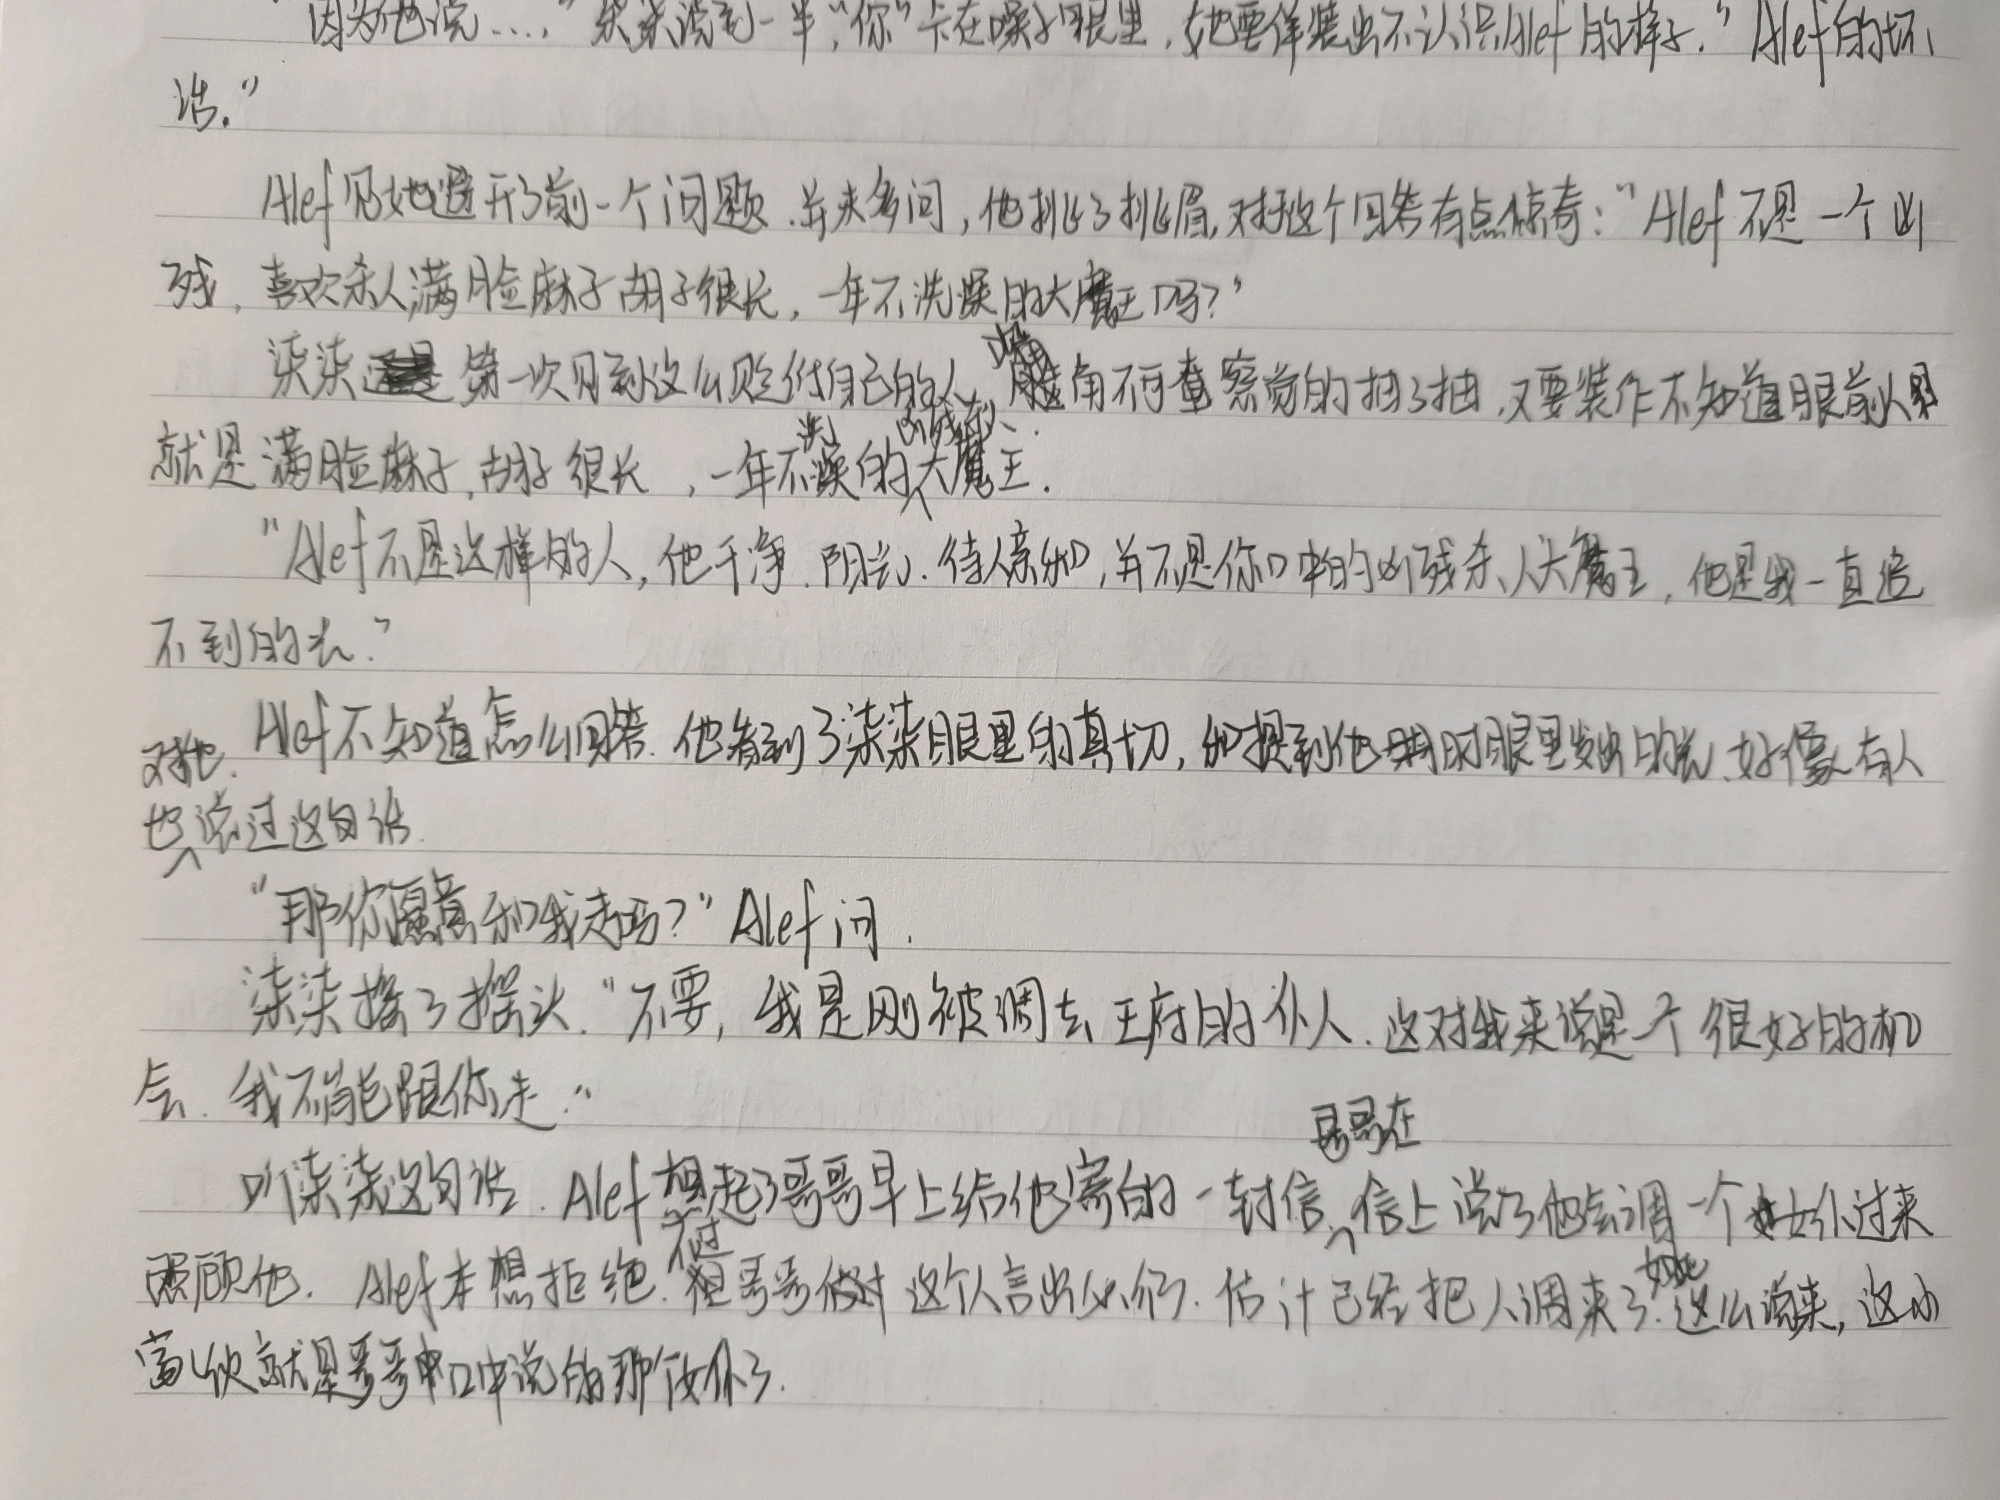 “因为他说....,”柒柒说到一半,“你”卡在嗓子眼里,她要佯装出不认识Alef的样子.“Alef的坏
话.”
Alef见她避开了前一个问题.并未多问,他挑了挑眉,对于这个回答有点惊奇:“Alef不是一个凶
残,喜欢杀人,满脸麻子胡子很长,一年不洗澡的大魔王吗?”
柒柒第一次见到这么贬低自己的人,嘴角不可查察觉的抽了抽,又要装作不知道眼前人
就是满脸麻子,胡子很长,一年不洗澡的凶残杀人大魔王.
“Alef不是这样的人,他干净.阳光.待人亲和,并不是你口中的凶残杀人大魔王,他是我一直追
不到的光.”
Alef不知道怎么回答.他看到了柒柒眼里的真切,和提到他时眼里发出的光.好像有人
也对他说过这句话.
“那你愿意和我走吗?”Alef问.
柒柒摇了摇头.“不要,我是刚被调去王府的仆人.这对我来说是一个很好的机
会.我不能跟你走.”
听柒柒这句话.Alef想起了哥哥早上给他寄的一封信,哥哥在信上说了他会调一个女仆过来
照顾他.Alef本想拒绝.不过哥哥这个人言出必行.估计已经把人调来了.如此说来,这小
就是哥哥口中说的那个女仆了.